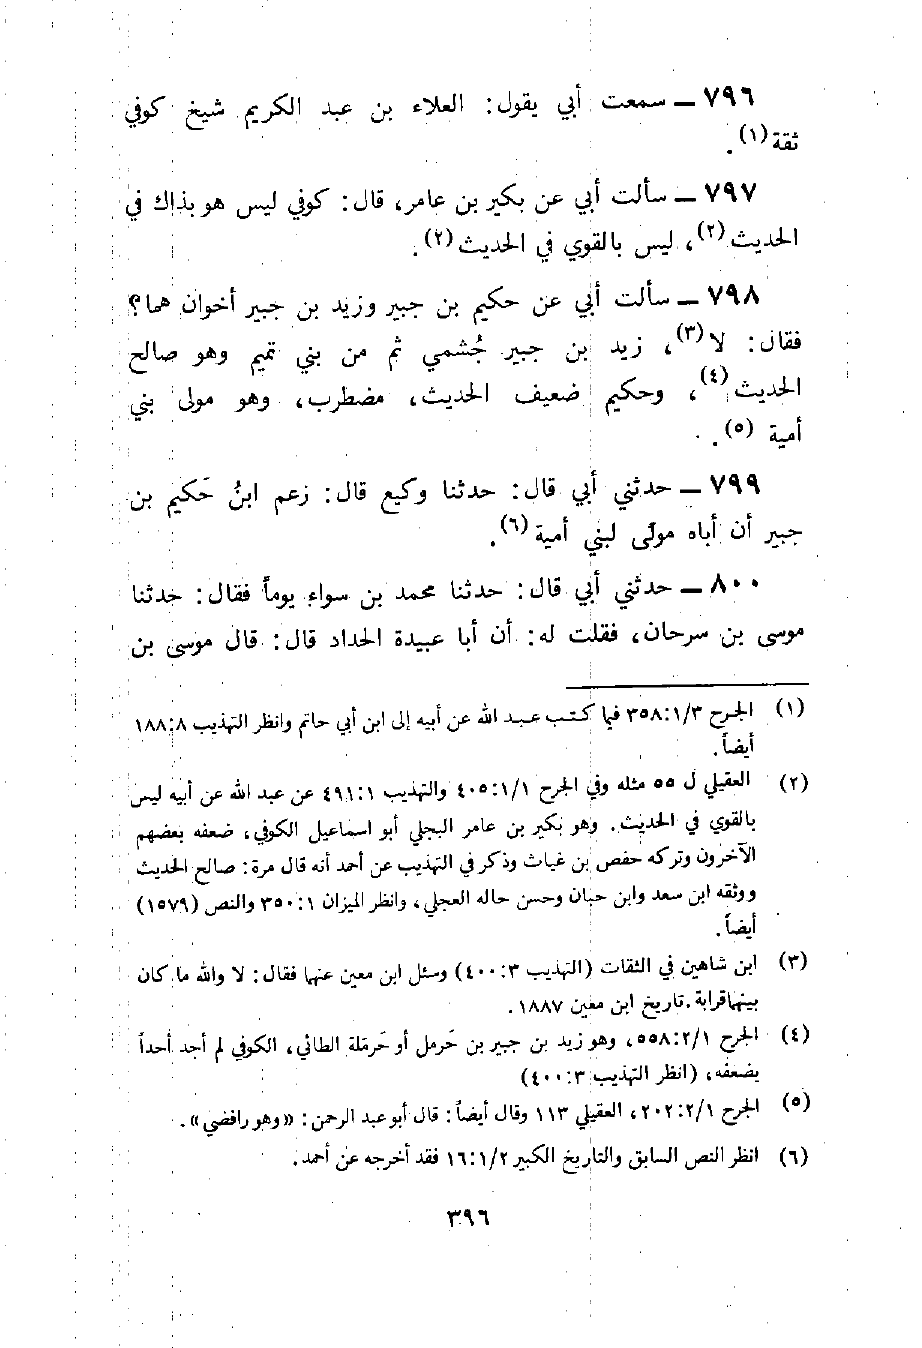 ٧٩٦ ــ سمعت أبي يقول: العلاء بن عبد الكريم شيخ كوفي
ثقة (١).
٧٩٧ ــ سألت أبي عن بكير بن عامر، قال: كوفي ليس هو بذاك في
الحديث (٢)، ليس بالقوي في الحديث (٢).
٧٩٨ ــ سألت أبي عن حكيم بن جبير وزيد بن جبير أخوان هما؟
فقال: لا (٣)، زيد بن جبير جُشمي ثم من بني تميم وهو صالح
الحديث (٤)، وحكيم ضعيف الحديث، مضطرب، وهو مولى بني
أمية (٥).
٧٩٩ ــ حدثني أبي قال: حدثنا وكيع قال: زعم ابنُ حَكيم بن
جبير أن أباه مولًى لبني أمية (٦).
٨٠٠ ــ حدثني أبي قال: حدثنا محمد بن سواء يوماً فقال: حدثنا
موسى بن سرحان، فقلت له: أن أبا عبيدة الحداد قال: قال موسى بن
(١) الجرح ٣/١:٣٥٨ فيما كتب عبد الله عن أبيه إلى ابن أبي حاتم وانظر التهذيب ٨:١٨٨
أيضاً.
(٢) العقيلي ل ٥٥ مثله وفي الجرح ١/١:٤٠٥ والتهذيب ١:٤٩١ عن عبد الله عن أبيه ليس
بالقوي في الحديث. وهو بكير بن عامر البجلي أبو اسماعيل الكوفي، ضعفه بعضهم
الآخرون وتركه حفص بن غياث وذكر في التهذيب عن أحمد أنه قال مرة: صالح الحديث
ووثقه ابن سعد وابن حبان وحسن حاله العجلي، وانظر الميزان ١:٣٥٠ والنص (١٥٧٩)
أيضاً.
(٣) ابن شاهين في الثقات (التهذيب ٣:٤٠٠) وسئل ابن معين عنهما فقال: لا والله ما كان
بينهما قرابة. تاريخ ابن معين ١٨٨٧.
(٤) الجرح ٢/١:٥٥٨، وهو زيد بن جبير بن حَرمل أو حَرمَلة الطائي، الكوفي لم أجد أحداً
يضعفه، (انظر التهذيب ٣:٤٠٠)
(٥) الجرح ٢/١:٢٠٢، العقيلي ١١٣ وقال أيضاً: قال أبو عبد الرحمن: «وهو رافضي».
(٦) انظر النص السابق والتاريخ الكبير ٢/١:١٦ فقد أخرجه عن أحمد.
٣٩٦